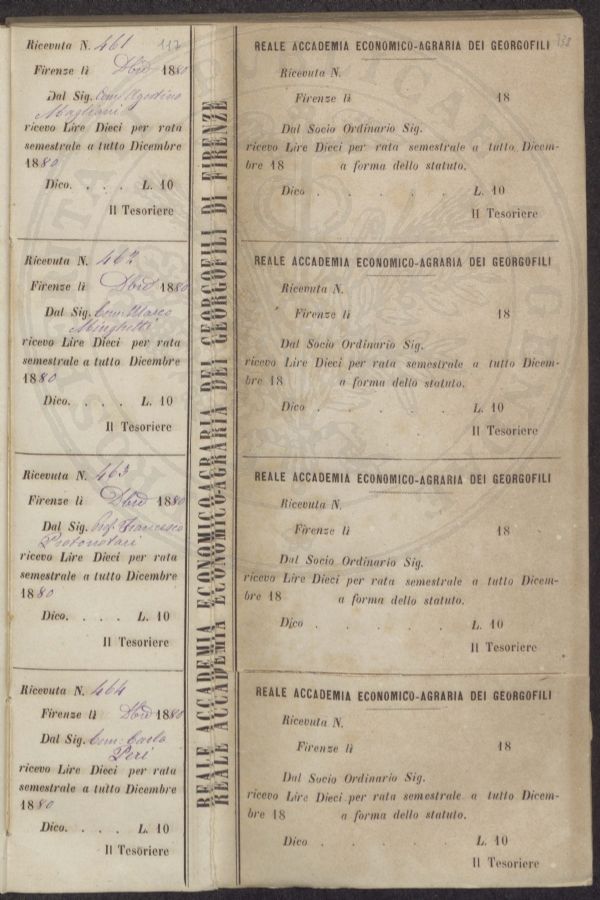 Ricevuta N. 461 117
Firenze lì Dbre 1880
Dal Sig. Com. Agostino
Magliani
ricevo Lire Dieci per rata
semestrale a tutto Dicembre
1880
Dico. . . . L. 10
Il Tesoriere
Ricevuta N. 462
Firenze lì Dbre 1880
Dal Sig. Com. Marco
Minghetti
ricevo Lire Dieci per rata
semestrale a tutto Dicembre
1880
Dico. . . . L. 10
Il Tesoriere
Ricevuta N. 463
Firenze lì Dbre 1880
Dal Sig. Prof. Francesco
Protonotari
ricevo Lire Dieci per rata
semestrale a tutto Dicembre
1880
Dico. . . . L. 10
Il Tesoriere
Ricevuta N. 464
Firenze lì Dbre 1880
Dal Sig. Com. Carlo
Peri
ricevo Lire Dieci per rata
semestrale a tutto Dicembre
1880
Dico. . . . L. 10
Il Tesoriere
REALE ACCADEMIA ECONOMICO-AGRARIA DEI GEORGOFILI DI FIRENZE
REALE ACCADEMIA ECONOMICO-AGRARIA DEI GEORGOFILI DI FIRENZE
REALE ACCADEMIA ECONOMICO-AGRARIA DEI GEORGOFILI
Ricevuta N.
Firenze lì 18
Dal Socio Ordinario Sig.
ricevo Lire Dieci per rata semestrale a tutto Dicem-
bre 18 a forma dello statuto.
Dico . . . . L. 10
Il Tesoriere
REALE ACCADEMIA ECONOMICO-AGRARIA DEI GEORGOFILI
Ricevuta N.
Firenze lì 18
Dal Socio Ordinario Sig.
ricevo Lire Dieci per rata semestrale a tutto Dicem-
bre 18 a forma dello statuto.
Dico . . . . L. 10
Il Tesoriere
REALE ACCADEMIA ECONOMICO-AGRARIA DEI GEORGOFILI
Ricevuta N.
Firenze lì 18
Dal Socio Ordinario Sig.
ricevo Lire Dieci per rata semestrale a tutto Dicem-
bre 18 a forma dello statuto.
Dico . . . . L. 10
Il Tesoriere
REALE ACCADEMIA ECONOMICO-AGRARIA DEI GEORGOFILI
Ricevuta N.
Firenze lì 18
Dal Socio Ordinario Sig.
ricevo Lire Dieci per rata semestrale a tutto Dicem-
bre 18 a forma dello statuto.
Dico . . . . L. 10
Il Tesoriere